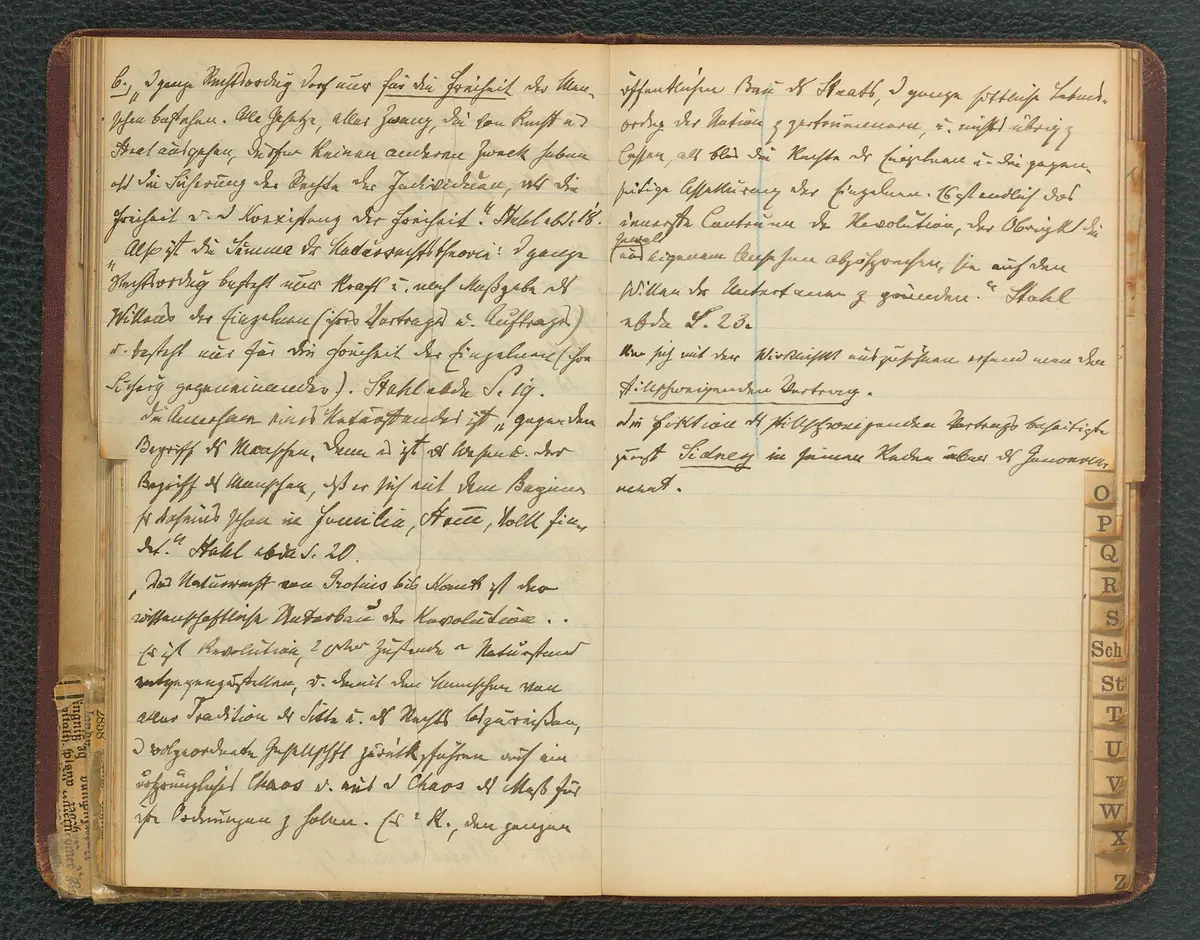 6., „D ganze Rechtsordng darf nur für die Freiheit der Men-
schen bestehen. Alle Gesetze, aller Zwang, die von Recht u
Staat ausgehen, dürfen keinen anderen Zweck haben
als die Sicherung der Rechte der Individuen, als die
Freiheit u. d Koexistenz der Freiheit.“ Stahl ebd. 18.
Also ist die Summa der Naturrechtstheorie: „D ganze
Rechtsordng besteht nur kraft u. nach Maßgabe des
Willens der Einzelnen (ihres Vertrags u. Auftrags)
u. besteht nur für die Freiheit der Einzelnen (ihre
Sicherg gegeneinander). Stahl ebda S. 19.
Die Annahme eines Naturstandes ist „gegen den
Begriff des Menschen, denn es ist das Wesen u. der
Begriff des Menschen, daß er sich mit dem Beginne
sr Daseins schon in Familie, Stamm, Volk fin-
det.“ Stahl ebda S. 20.
„Das Naturrecht von Grotius bis Kant ist der
wissenschaftliche Unterbau der Revolution . .
Es ist Revolution, Zustande Naturstand
entgegenzustellen, u. damit den Menschen von
aller Tradition der Sitte u. des Rechts loszureißen,
d wolgeordnete Gesellschft zurückzführen auf ein
ursprüngliches Chaos u. aus d Chaos das Maß für
ihre Ordnungen z holen. Es R., den ganzen
öffentlichen Bau des Staats, d ganze sittliche Lebens-
ordng der Nation z zertrümmern, u. nichts übrig z
lassen, als blos die Rechte der Einzelnen u. die gegen-
seitige Assekurang der Einzelnen. Es ist endlich das
innerste Centrum der Revolution, der Obrigkt die
Gewalt
aus eigenem Ansehen abzusprechen, sie auf den
Willen der Untertanen z gründen.“ Stahl
ebda S. 23.
Um sich mit der Wirklichkt auszusöhnen erfand man den
stillschweigenden Vertrag.
Die Fiktion des stillschweigenden Vertrags beseitigte
zuerst Sidney in seinen Reden über das Gouverne-
ment.
O
P
Q
R
S
Sch
St
T
U
V
W
X
Z